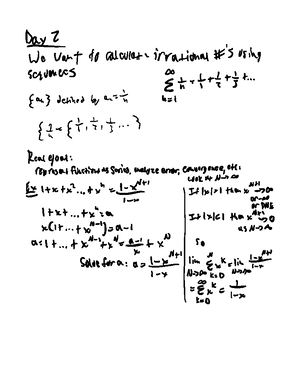 Day 2
We want to calculate irrational #'s using
sequences
∞
Σ 1/n = 1/1 + 1/2 + 1/3 + ...
n=1
{aₙ} defined by aₙ = 1/n
{1/n} = {1/1, 1/2, 1/3, ...}
Real goal:
represent functions as series, analyze error, convergence, etc.
Ex 1+x+x²...+xᴺ = (1-xᴺ⁺¹)/(1-x)
1+x+...+xᴺ = a
x(1+...+xᴺ⁻¹) = a-1
a = 1+...+xᴺ⁻¹+xᴺ = (a-1)/x + xᴺ
Solve for a: a = (1-xᴺ⁺¹)/(1-x)
Look at N→∞
If |x|>1 then xᴺ⁺¹→∞
or -∞
or DNE
If |x|<1 then xᴺ⁺¹→0
as N→∞
So
lim N→∞ Σ k=0 N xᵏ = lim N→∞ (1-xᴺ⁺¹)/(1-x)
= Σ k=0 ∞ xᵏ = 1/(1-x)